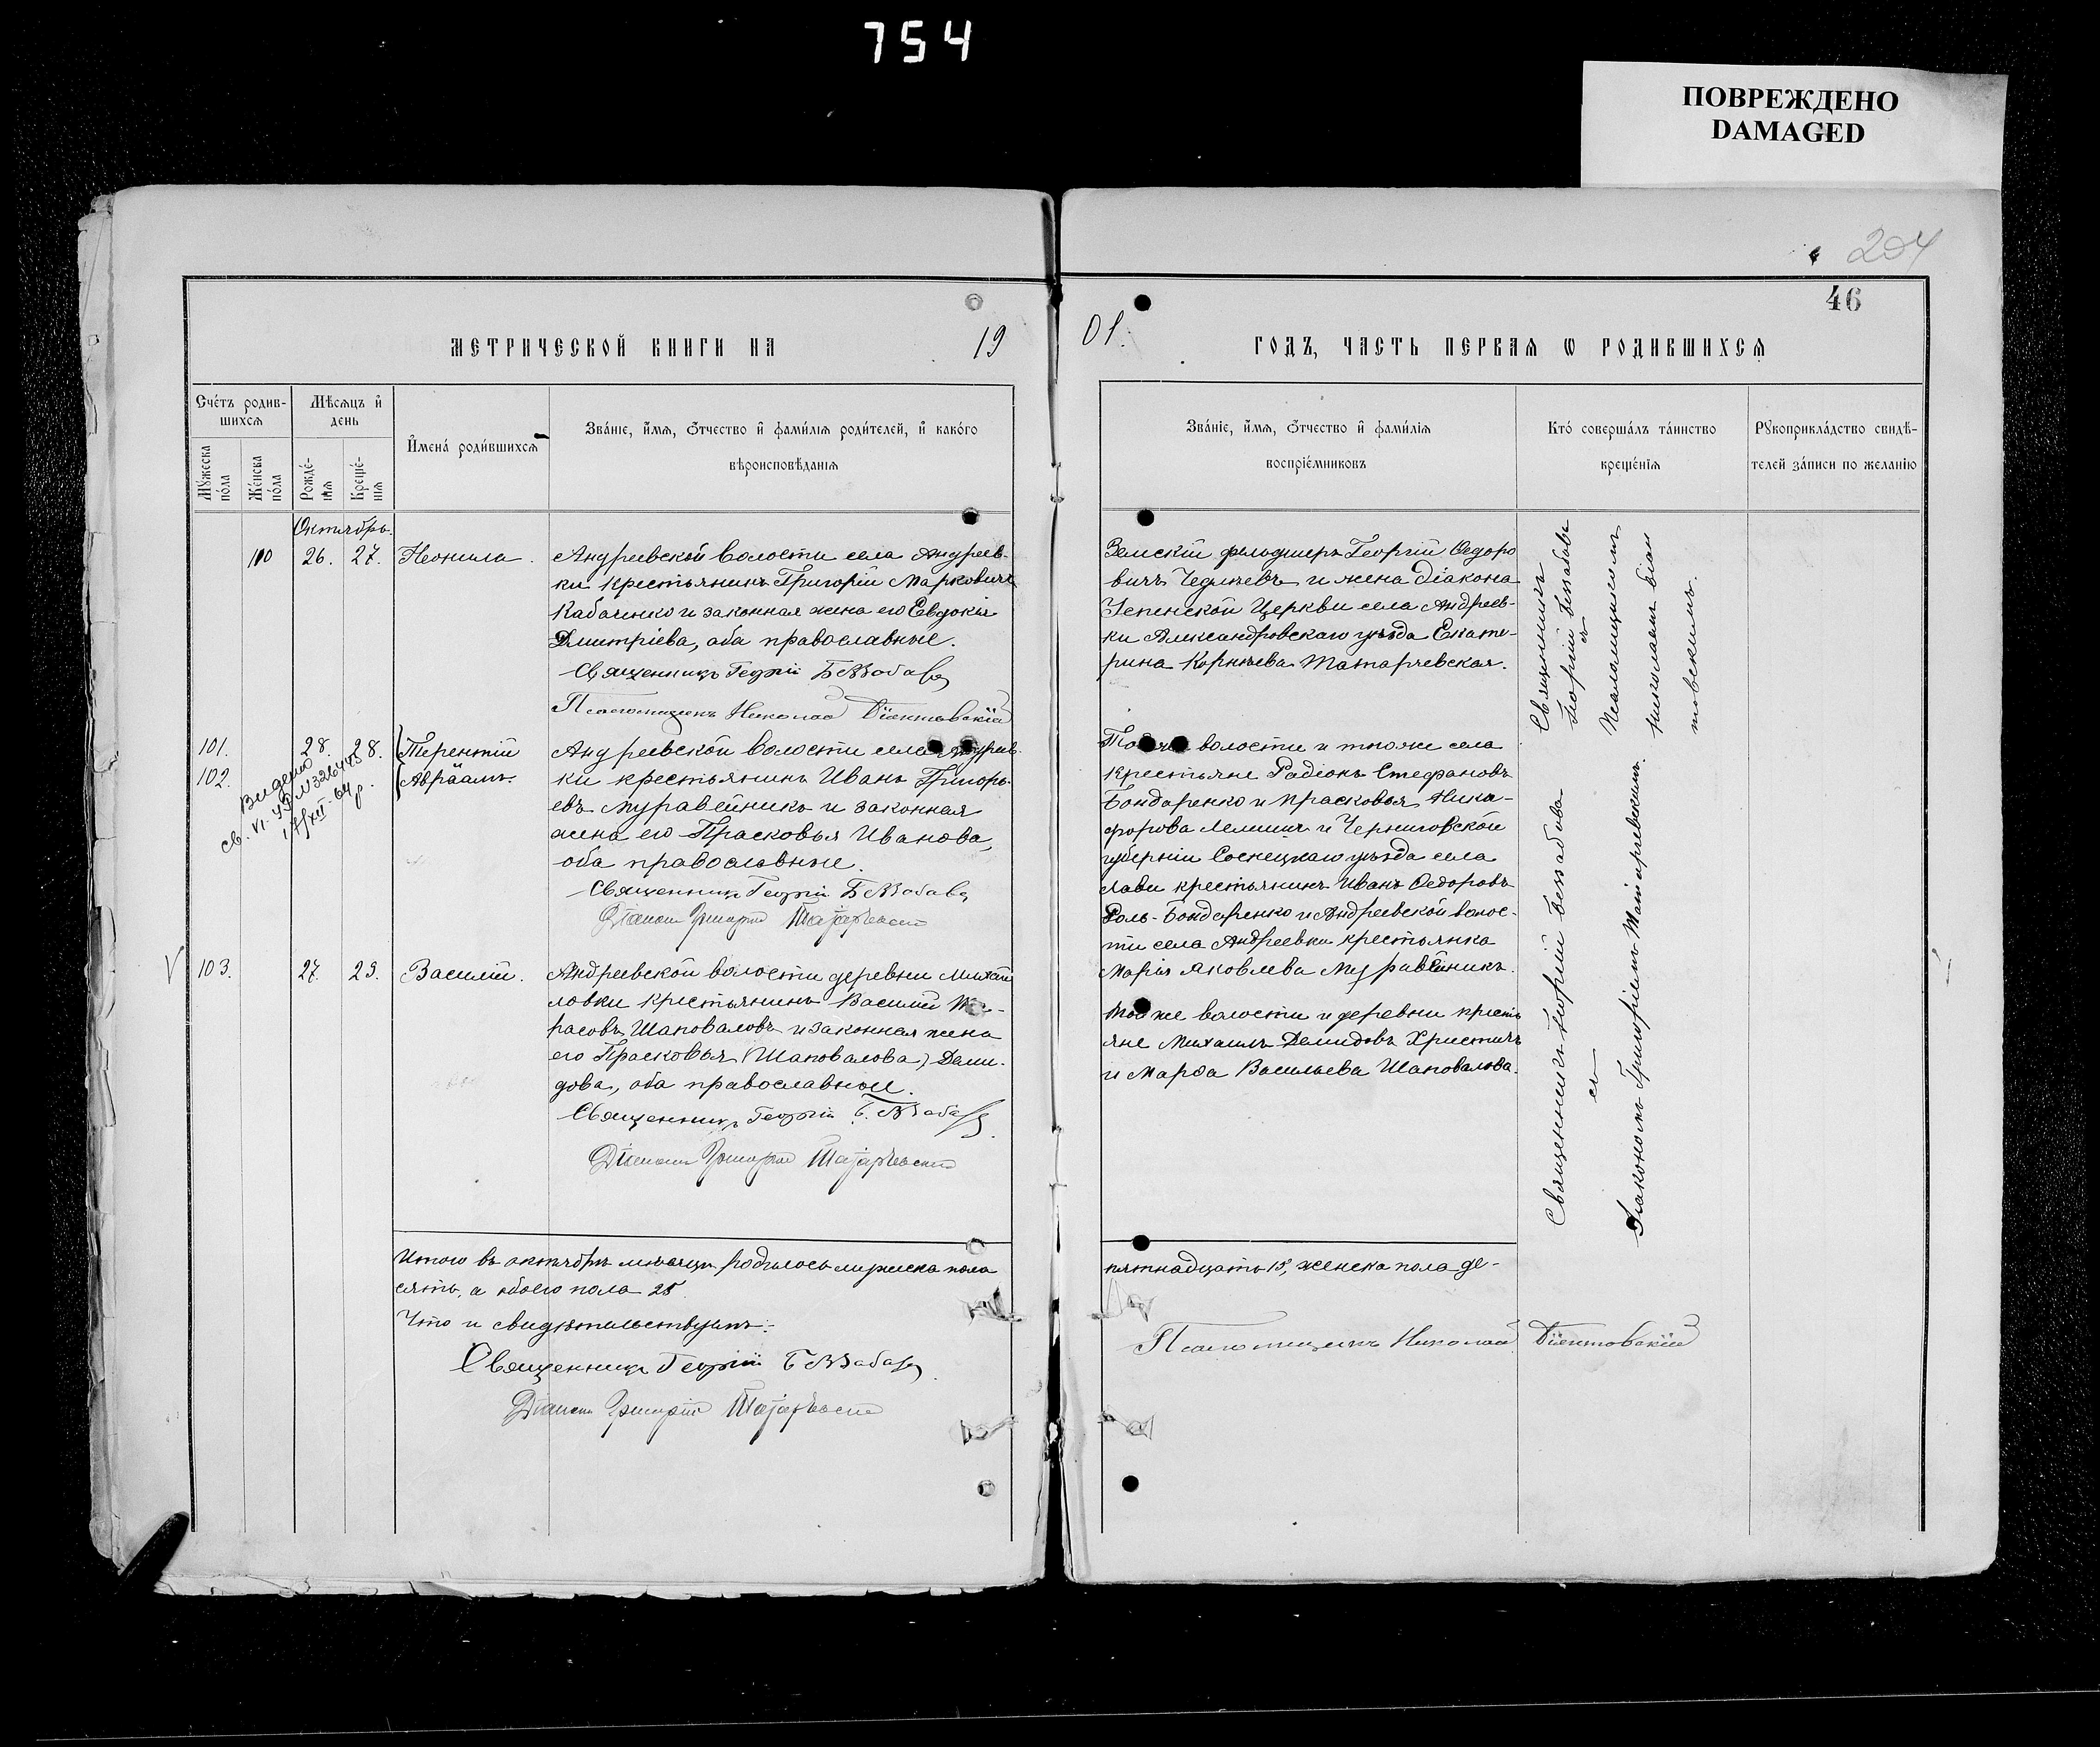 754
ПОВРЕЖДЕНО
DAMAGED
204
46
МЕТРИЧЕСКОЙ КНИГИ НА 19
01. ГОДЪ, ЧАСТЬ ПЕРВАЯ Ѡ РОДИВШИХСЯ
Счетъ родив-
шихся
Мужеска пола
Женска пола
Мѣсяцъ и
день
Рожде-
нія
Креще-
нія
Имена родившихся
Званіе, имя, отчество и фамилія родителей, и какого
вѣроисповѣданія
Званіе, имя, отчество и фамилія
воспріемниковъ
Кто совершалъ таинство
крещенія
Рукоприкладство свидѣ-
телей записи по желанію
Октябрь.
100 26. 27. Неонила.
Андреевской волости села Андреев-
ки крестьянинъ Григорій Марковичъ
Кабаченко и законная жена его Евдокія
Дмитріева, оба православные.
Священникъ Георгій Беззабава
Псаломщикъ Николай
Земскій фельдшеръ Георгій Ѳедоро
вичъ и жена діакона
Успенской Церкви села Андреев-
ки Александровскаго уѣзда Екате-
рина Корніева Татаревская.
Священникъ
Георгій Беззабава
съ
Псаломщикомъ
Николаемъ
101. 28. 28. Терентій
102. Авраамъ.
Видено
св. VI-УР N 326448
17/XII-64 р.
Андреевской волости села Андреев-
ки крестьянинъ Иванъ Григорь-
евъ Муравейникъ и законная
жена его Прасковья Иванова,
оба православные.
Священникъ Георгій Беззабава
Діаконъ Григорій Татаревскій
волости и того же села
крестьяне Радіонъ Стефановъ
Бондаренко и Прасковья Ники-
форова и Черниговской
губерніи Сосницкаго уѣзда села
крестьянинъ Иванъ Ѳедоровъ
Бондаренко и Андреевской волос-
ти села Андреевки крестьянка
Марія Яковлева Муравейникъ.
V 103. 27. 29. Василій.
Андреевской волости деревни Михай
ловки крестьянинъ Василій Та-
расовъ Шаповаловъ и законная жена
его Прасковья (Шаповалова) Деми-
дова, оба православные.
Священникъ Георгій Беззабава
Діаконъ Григорій Татаревскій
Той же волости и деревни кресть
яне Михаилъ Демидовъ Христичъ
и Марѳа Васильева Шаповалова.
Священникъ Георгій Беззабава
съ
Діакономъ Григоріемъ Татаревскимъ.
Итого въ октябрѣ мѣсяцѣ родилось мужеска пола
пятнадцать 15, женска пола де-
сять, а обоего пола 25
Что и свидѣтельствуемъ:
Священникъ Георгій Беззабава
Діаконъ Григорій Татаревскій
Псаломщикъ Николай